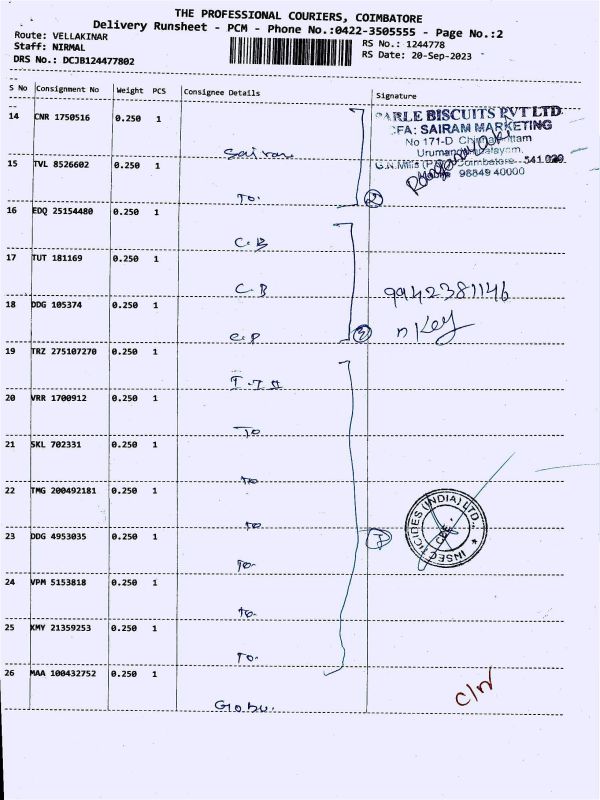 THE PROFESSIONAL COURIERS, COIMBATORE
Delivery Runsheet - PCM - Phone No.:0422-3505555 - Page No.:2
Route: VELLAKINAR
RS No.: 1244778
Staff: NIRMAL
RS Date: 20-Sep-2023
DRS No.: DCJB124477802
S No Consignment No Weight PCS Consignee Details Signature
14 CNR 1750516 0.250 1
Sairam
PARLE BISCUITS PVT LTD
CFA: SAIRAM MARKETING
No 171-D
15 TVL 8526602 0.250 1
To.
2
Coimbatore - 541 029.
98849 40000
16 EDQ 25154480 0.250 1
C.B
17 TUT 181169 0.250 1
C.B
9942381146
18 DDG 105374 0.250 1
C.P
3
19 TRZ 275107270 0.250 1
20 VRR 1700912 0.250 1
To
21 SKL 702331 0.250 1
To
22 TMG 200492181 0.250 1
To
INSECTICIDES (INDIA) LTD.,
CBE.
23 DDG 4953035 0.250 1
To.
7
24 VPM 5153818 0.250 1
To.
25 KMY 21359253 0.250 1
To.
26 MAA 100432752 0.250 1
Gobu.